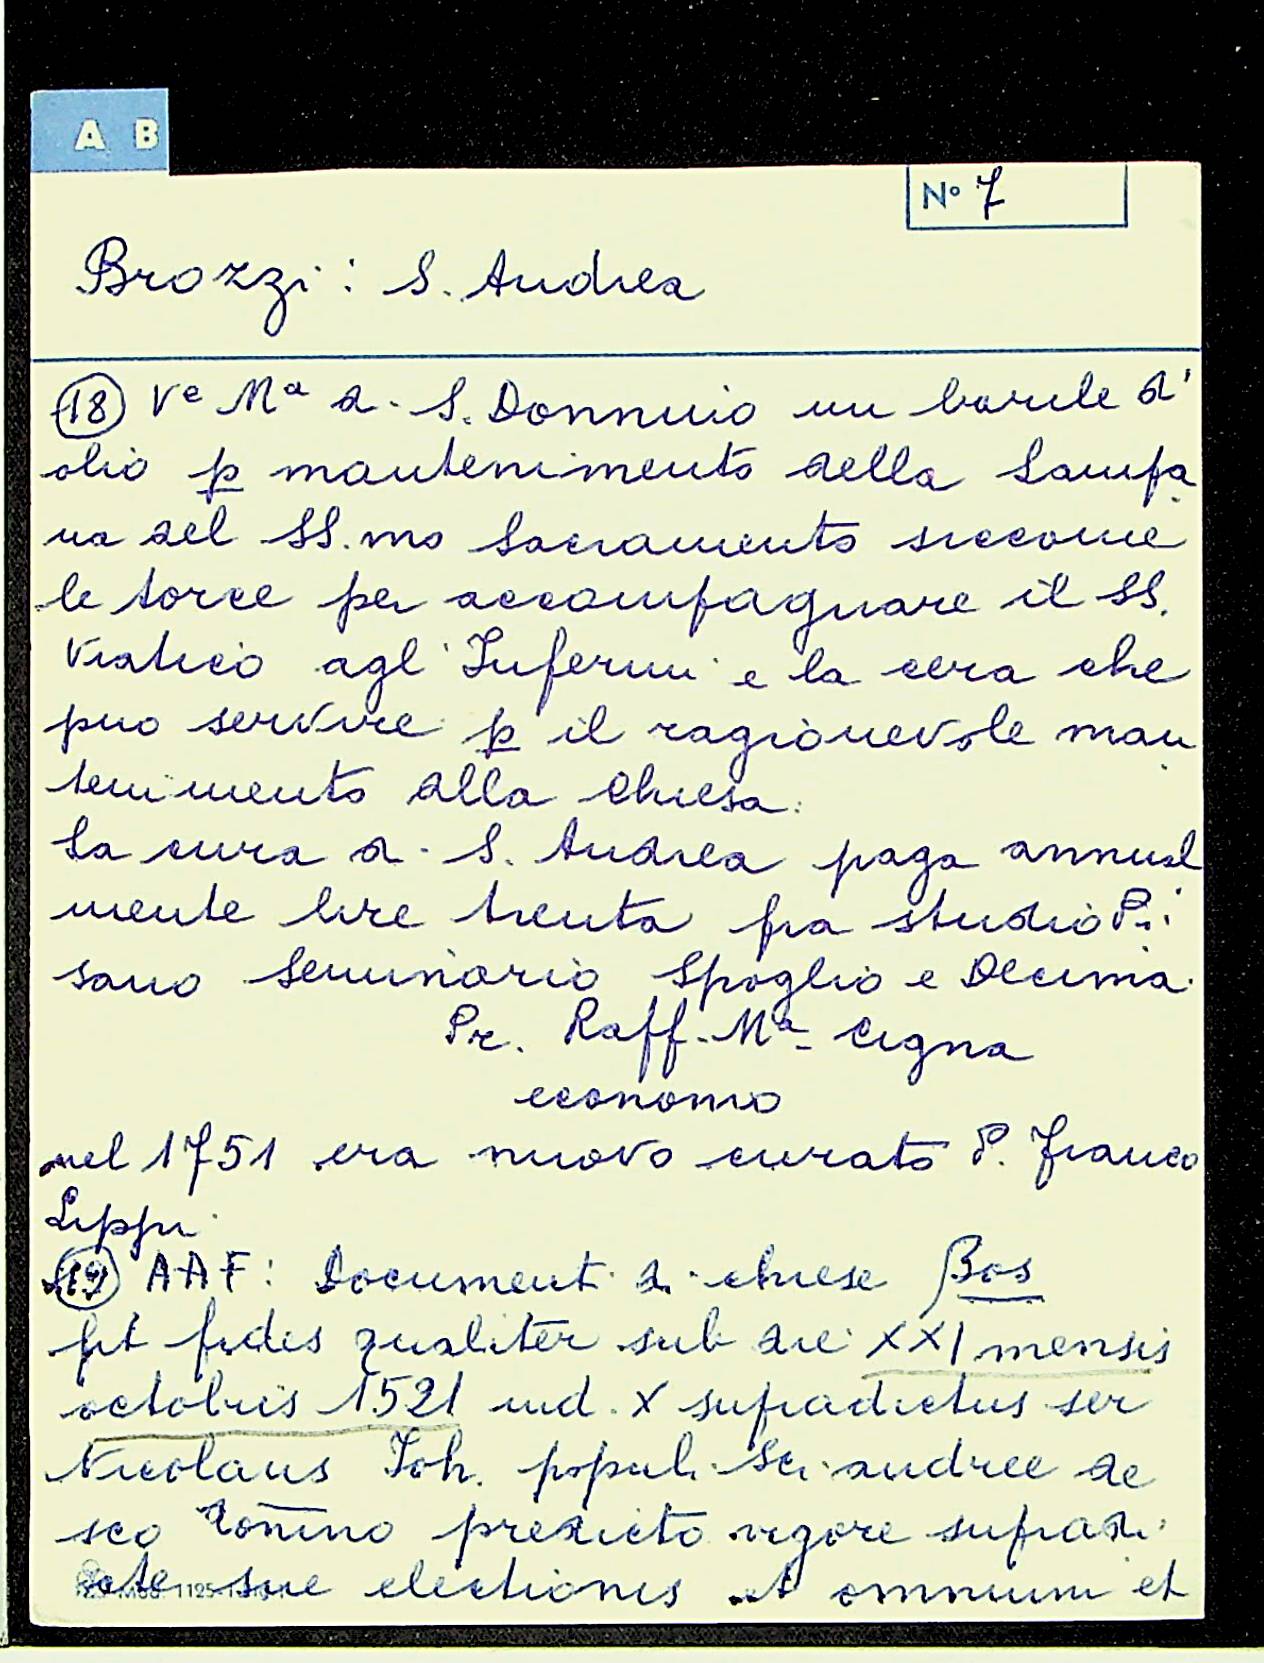 A B
Nº 7
Brozzi: S. Andrea
18 Vᵉ Mᵃ di S. Donnino un barile d'
olio p mantenimento della Lampa
na del SS.mo Sacramento siccome
le torce per accompagnare il SS.
Viatico agl'Infermi e la cera che
puo servire p il ragionevole man
tenimento alla Chiesa.
La cura di S. Andrea paga annual
mente lire trenta fra studio Pi
sano Seminario Spoglio e Decima.
Pr. Raff. Mᵃ Cigna
economo
nel 1751 era nuovo curato P. Franco
Lippi.
19 AAF: Documenti di chiese Bos
fit fides qualiter sub die XXI mensis
octobris 1521 ind. X supradictus ser
Nicolaus Joh. populi Sci andree de
sco Donino predicto vigore supradi
cte sue electionis et omnium et